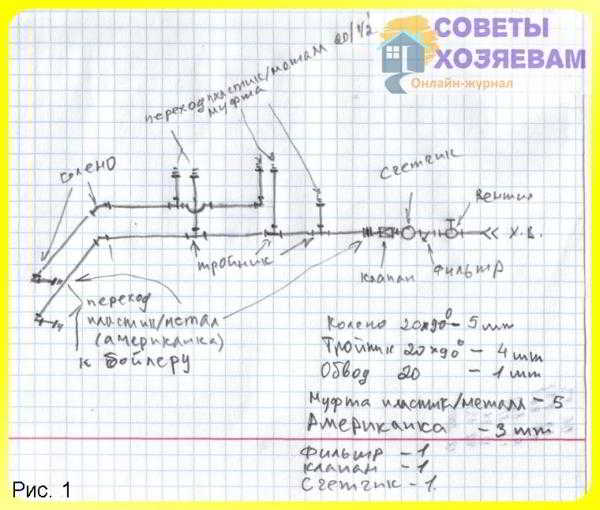 СОВЕТЫ
ХОЗЯЕВАМ
Онлайн-журнал
переход пластик/метал 20/1/2
муфта
колено
счетчик
вентил
х.в.
тройник
клапан
фильтр
переход
пластик/метал
(американка)
к бойлеру
Колено 20x90° - 5 шт
Тройник 20x90° - 4 шт
Обвод 20 - 1 шт
Муфта пластик/металл - 5
Американка - 3 шт
Фильтр - 1
клапан - 1
Счетчик - 1.
Рис. 1